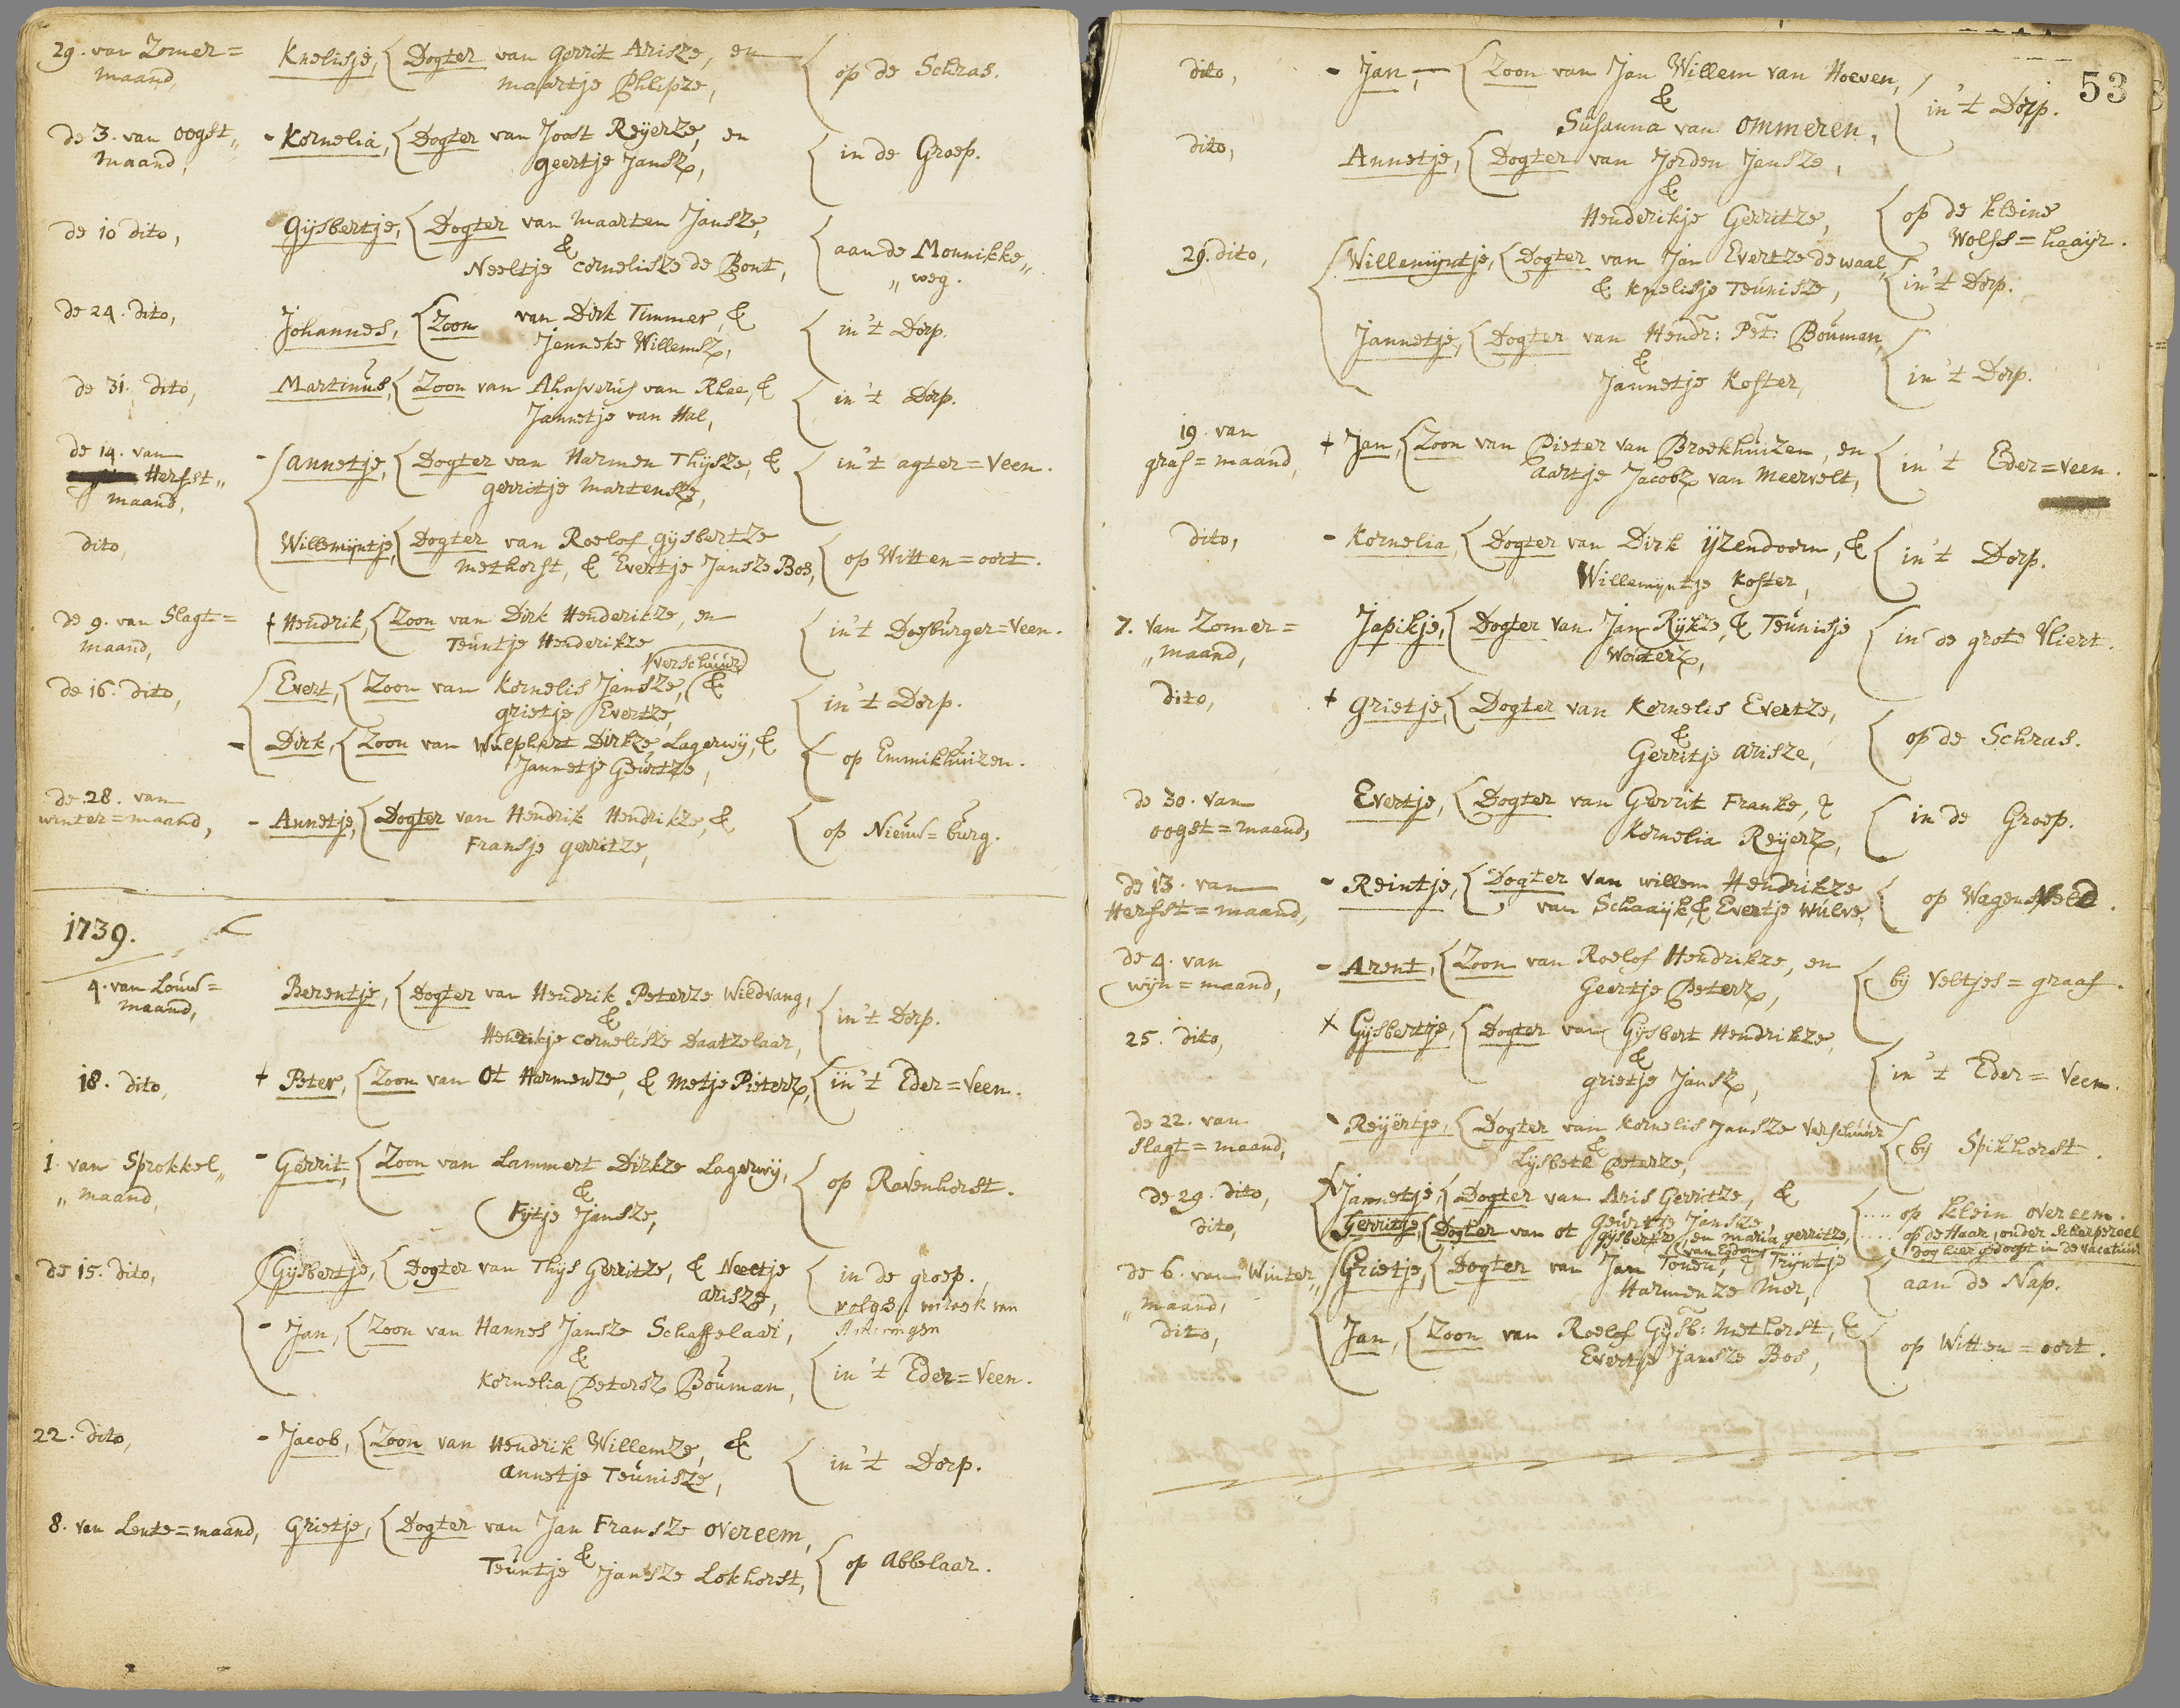 29. van Zomer= Knelisje, Dogter van gerrit Arisze, en op de Schras.
maand, maartje Phlipze,
de 3. van oogst„ - Kornelia, Dogter van Joost Reÿerze, en in de Groep.
maand, geertje Jansz,
de 10 dito, Gijsbertje, Dogter van maarten Jansze, aan de Monnikke„
& „weg.
Neeltje cornelisze de Bont,
de 24. dito, Johannes, Zoon van Dirk Timmer, & in 't Dorp.
Jenneke Willemsz,
de 31. dito, Martinus, Zoon van Ahasverus van Rhee, & in 't Dorp.
Jannetje van Hal,
de 14. van - annetje, Dogter van Harmen Thijsze, & in 't agter=Veen.
Herfst„ gerritje Martensze,
maand,
dito, Willemijntje, Dogter van Roelof gijsbertze op Witten=oort.
methorst, & Evertje Jansze Bos,
de 9. van Slagt= + Hendrik, Zoon van Dirk Henderikze, en in 't Doesburger=Veen.
maand, Teuntje Henderikze
verschuur
de 16. dito, Evert, Zoon van Kornelis Jansze, & in 't Dorp.
grietje Evertze,
- Dirk, Zoon van Wulphert Dirkze Lagerwij, & op Emmikhuizen.
Jannetje Geurtze,
de 28. van - Annetje, Dogter van Hendrik Hendrikze, & op Nieuw=burg.
winter=maand, Fransje gerritze,
1739.
4. van Louw= Berentje, Dogter van Hendrik Peterze Wildvang, in 't Dorp.
maand, &
Hendrikje cornelisze Daatzelaar,
18. dito, + Peter, Zoon van Ot Harmenze, & Metje Pietersz, in 't Eder=Veen.
1. van Sprokkel„ - Gerrit, Zoon van Lammert Dirkze Lagerwij, op Ravenhorst.
„maand, &
Fijtje Jansze,
de 15. dito, Gijsbertje, Dogter van Thijs Gerritze, & Neeltje in de groep.
arisze, volgens
- Jan, Zoon van Hannes Jansze Schaffelaar,
& in 't Eder=Veen.
Kornelia Petersz Bouman,
22. dito, - Jacob, Zoon van Hendrik Willemze, & in 't Dorp.
annetje Teunisze,
8. van Lente=maand, Grietje, Dogter van Jan Fransze overeem, op Abbelaar.
&
Teuntje Jansze Lokhorst,
53
dito, - Jan, Zoon van Jan Willem van Hoeven, in 't Dorp.
&
Susanna van Ommeren,
dito, Annetje, Dogter van Jorden Jansze,
&
Henderikje Gerritze, op de kleine
Wolfs=haaijr.
29. dito, Willemijntje, Dogter van Jan Evertze de waal, in 't Dorp.
& Knelisje Teunisze,
Jannetje, Dogter van Hendr: Pet: Bouman, in 't Dorp.
&
Jannetje Koster,
19. van + Jan, Zoon van Pieter van Broekhuizen, en in 't Eder=veen.
gras=maand, aartje Jacobz van Meervelt,
dito, - Kornelia, Dogter van Dirk ijzendoorn, & in 't Dorp.
Willemijntje Koster,
7. van Zomer= Japikje, Dogter van Jan Rijkze, & Teunisje in de grote Vliert.
„maand, Wouterz,
dito, + grietje, Dogter van Kornelis Evertze, op de Schras.
&
Gerritje arisze,
de 30. van Evertje, Dogter van Gerrit Franke, & in de Groep.
oogst=maand, Kornelia Reijerz,
de 13. van - Reintje, Dogter van willem Hendrikze op Wagensveld.
Herfst=maand, van Schaaijk, & Evertje Wulve,
de 4. van - Arent, Zoon van Roelof Hendrikze, en bij Veltjes=graaf.
wijn=maand, Geertje Peterz,
25. dito, x Gijsbertje, Dogter van Gijsbert Hendrikze, in 't Eder=Veen.
&
grietje Jansz,
de 22. van - Reijertje, Dogter van Kornelis Jansze Verschuur bij Spikhorst.
slagt=maand, &
Lijsbeth Peterze,
de 29. dito, Jannetje, Dogter van Aris Gerritze, & .... op klein overeem.
Geurtje Jansze
dito, Gerritje, Dogter van ot gijsbertz, en maria gerritze, ..... op de Haar, onder Scherpezeel
van Egdom Dog hier gedoopt in de vacatuur.
de 6. van Winter„ Grietje, Dogter van Jan Tonen, & Trijntje aan de Nap.
„maand, Harmenze Mer,
dito, Jan, Zoon van Roelof Gijsb: methorst, & op Witten=oort.
Evertje Jansze Bos,